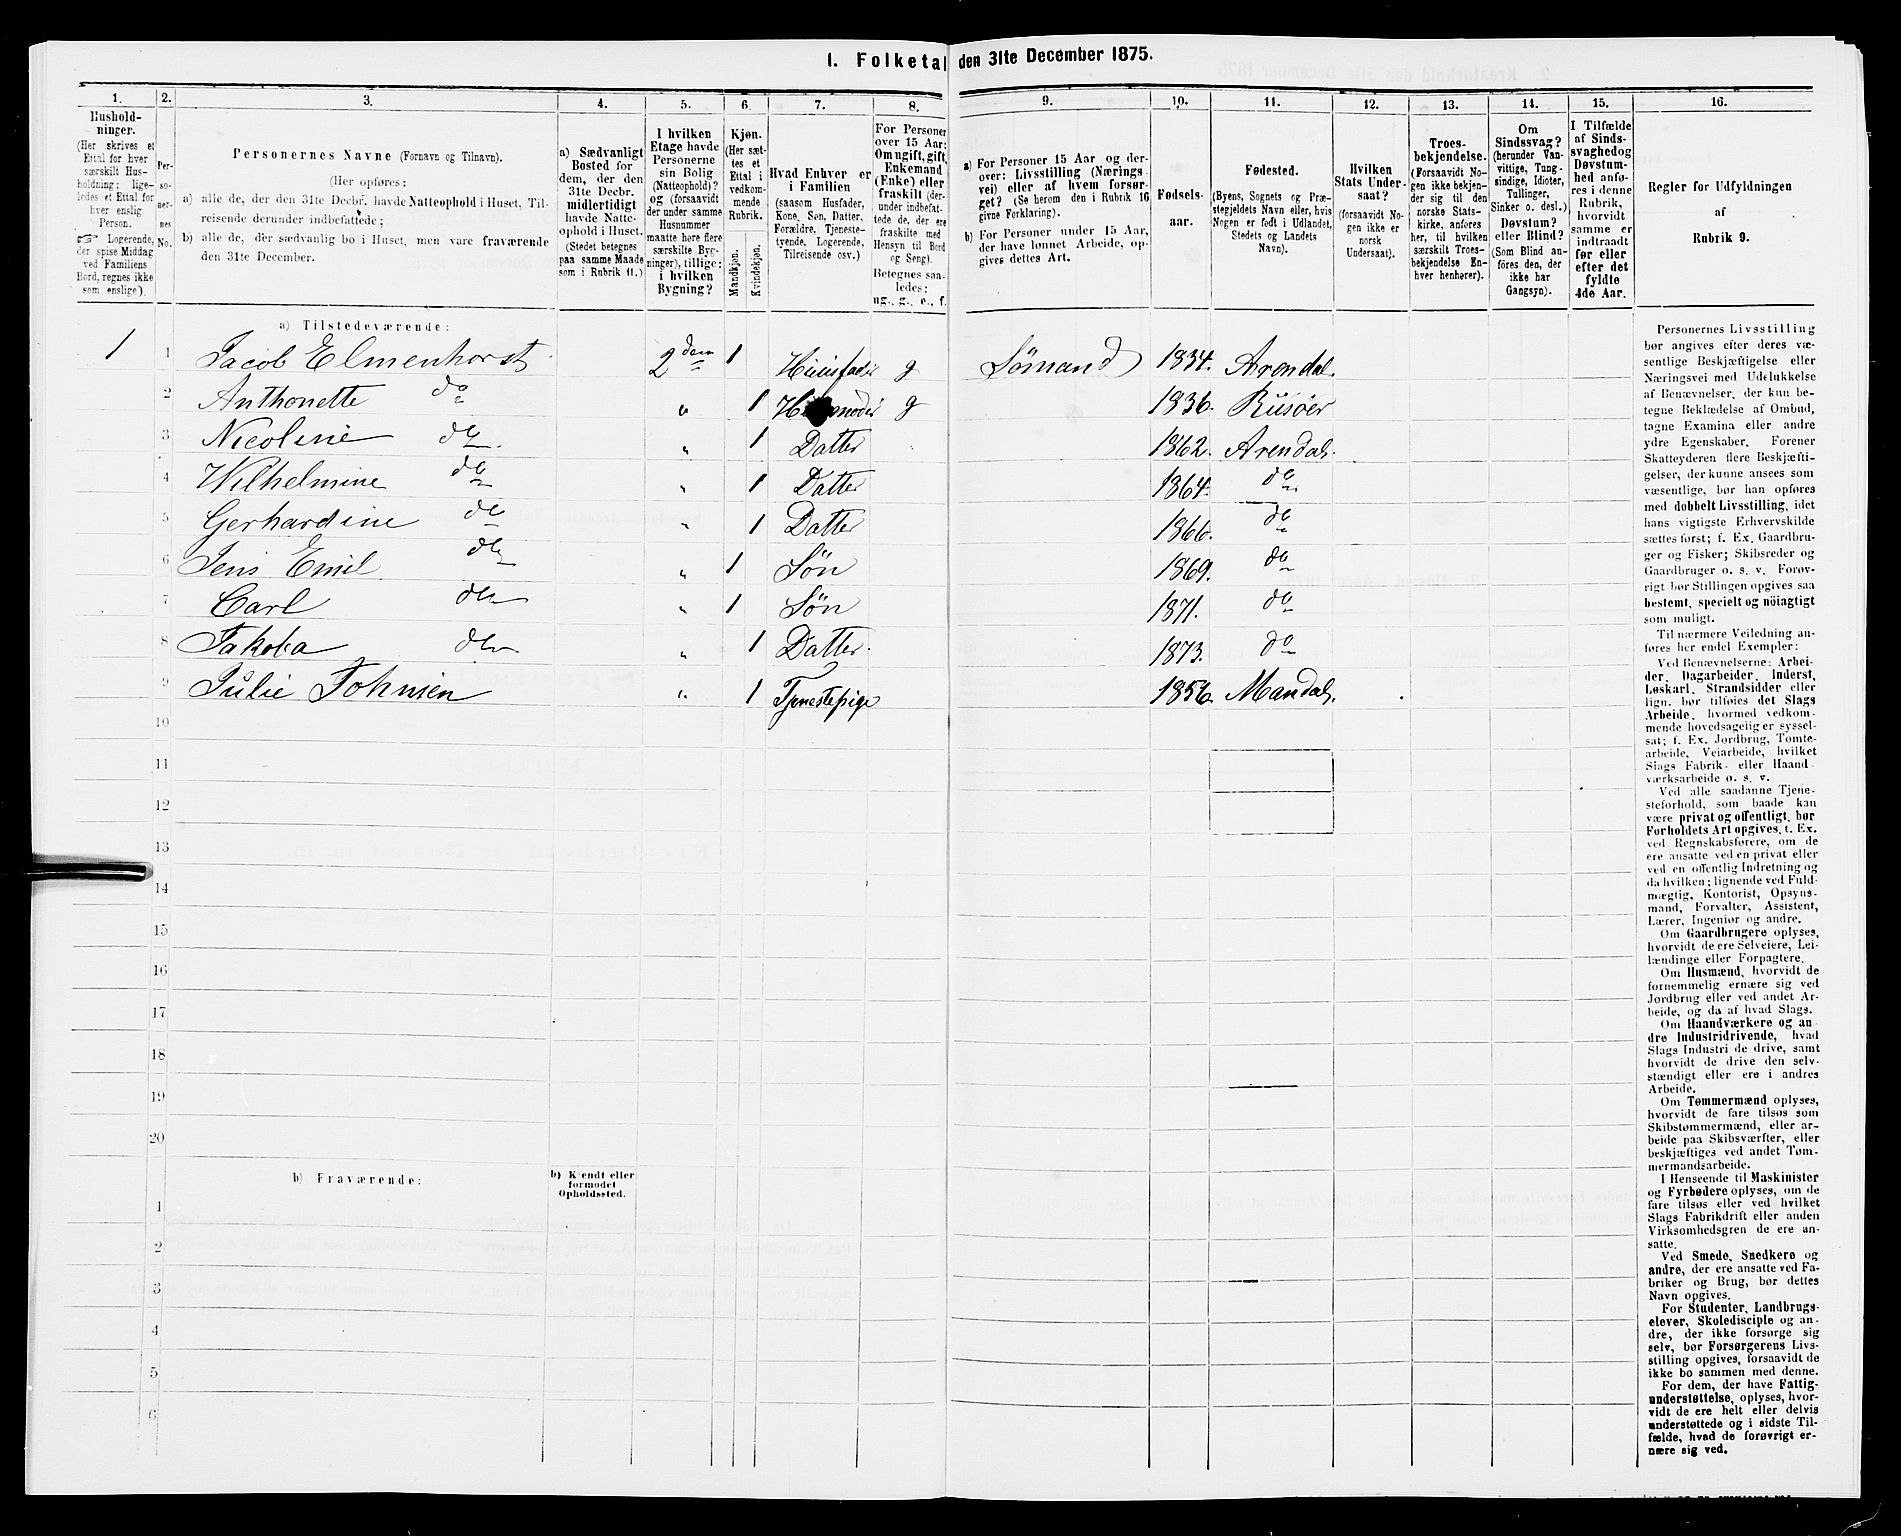 I. Folketal den 31te December 1875.
1. 2. 3. 4. 5. 6. 7. 8. 9. 10. 11. 12. 13. 14. 15. 16.
Hushold-
ninger.
(Her skrives et
Ettal for hver
særskilt Hus-
holdning; lige-
ledes et Ettal for
hver enslig
Person.
☞ Logerende,
der spise Middag
ved Familiens
Bord, regnes ikke
som enslige).
Per-
so-
ner-
nes
No.
Personernes Navne (Fornavn og Tilnavn).
(Her opføres:
a) alle de, der den 31te Decbr. havde Natteophold i Huset, Til-
reisende derunder indbefattede;
b) alle de, der sædvanlig bo i Huset, men vare fraværende
den 31te December.
a) Sædvanligt
Bosted for
dem, der den
31te Decbr.
midlertidigt
havde Natte-
ophold i Huset.
(Stedet betegnes
paa samme Maade
som i Rubrik 11.)
I hvilken
Etage havde
Personerne
sin Bolig
(Natteophold)?
og (forsaavidt
der under samme
Husnummer
maatte høre flere
særskilte Byg-
ninger), tillige:
i hvilken
Bygning?
Kjøn.
(Her sæt-
tes et
Ettal i
vedkom-
mende
Rubrik.
Mandkjøn.
Kvindekjøn.
Hvad Enhver er
i Familien
(saasom Husfader,
Kone, Søn, Datter,
Forældre, Tjeneste-
tyende, Logerende,
Tilreisende osv.)
For Personer
over 15 Aar:
Om ugift, gift,
Enkemand
(Enke) eller
fraskilt (der-
under indbefat-
tede de, der ere
fraskilte med
Hensyn til Bord
og Seng).
Betegnes saa-
ledes:
ug., g., e., f.
a) For Personer 15 Aar og der-
over: Livsstilling (Nærings-
vei) eller af hvem forsør-
get? (Se herom den i Rubrik 16
givne Forklaring).
b) For Personer under 15 Aar,
der have lønnet Arbeide, op-
gives dettes Art.
Fødsels-
aar.
Fødested.
(Byens, Sognets og Præ-
stegjeldets Navn eller, hvis
Nogen er født i Udlandet,
Stedets og Landets
Navn).
Hvilken
Stats Under-
saat?
(forsaavidt No-
gen ikke er
norsk
Undersaat).
Troes-
bekjendelse.
(Forsaavidt No-
gen ikke bekjen-
der sig til den
norske Stats-
kirke, anføres
her, til hvilken
særskilt Troes-
bekjendelse En-
hver henhører).
Om
Sindssvag?
(herunder Van-
vittige, Tung-
sindige, Idioter,
Tullinger,
Sinker o. desl.)
Døvstum?
eller Blind?
(Som Blind an-
føres den, der
ikke har
Gangsyn).
I Tilfælde
af Sinds-
svaghed og
Døvstum-
hed anfø-
res i denne
Rubrik,
hvorvidt
samme er
indtraadt
før eller
efter det
fyldte
4de Aar.
Regler for Udfyldningen
af
Rubrik 9.
a) Tilstedeværende:
1 1 Jacob Elmenhorst 2den 1 Huusfader g Sømand 1834. Arendal.
2 Anthonette do " 1 g 1836. Risöer
3 Nicoline do " 1 Datter 1862. Arendal.
4 Wilhelmine do " 1 Datter 1864. do
5 Gerhardine do " 1 Datter 1866. do
6 Jens Emil do " 1 Søn 1869. do
7 Carl do " 1 Søn 1871. do
8 Jakoba do " 1 Datter. 1873. do
9 Julie Johnsen " 1 Tjenestepige 1856. Mandal.
10
11
12
13
14
15
16
17
18
19
20
b) Fraværende:
b) Kjendt eller
formodet
Opholdssted.
1
2
3
4
5
6
Personernes Livsstilling
bør angives efter deres væ-
sentlige Beskjæftigelse eller
Næringsvei med Udelukkelse
af Benævnelser, der kun be-
tegne Beklædelse af Ombud,
tagne Examina eller andre
ydre Egenskaber. Forener
Skatteyderen flere Beskjæfti-
gelser, der kunne ansees som
væsentlige, bør han opføres
med dobbelt Livsstilling, idet
hans vigtigste Erhvervskilde
sættes først; f. Ex. Gaardbru-
ger og Fisker; Skibsreder og
Gaardbruger o. s. v. Forøv-
rigt bør Stillingen opgives saa
bestemt, specielt og nöiagtigt
som muligt.
Til nærmere Veiledning an-
føres her endel Exempler:
Ved Benævnelserne: Arbei-
der, Dagarbeider, Inderst,
Løskarl, Strandsidder eller
lign. bør tilføies det Slags
Arbeide, hvormed vedkom-
mende hovedsagelig er syssel-
sat; f. Ex. Jordbrug, Tomte-
arbeide, Veiarbeide, hvilket
Slags Fabrik- eller Haand-
værksarbeide o. s. v.
Ved alle saadanne Tjene-
steforhold, som baade kan
være privat og offentligt, bør
Forholdets Art opgives, t. Ex.
ved Regnskabsførere, om de
ere ansatte ved en privat eller
ved en offentlig Indretning og
da hvilken; lignende ved Fuld-
mægtig, Kontorist, Opsyns-
mand, Forvalter, Assistent,
Lærer, Ingeniør og andre.
Om Gaardbrugere oplyses,
hvorvidt de ere Selveiere, Lei-
lændinge eller Forpagtere.
Om Husmænd, hvorvidt de
fornemmelig ernære sig ved
Jordbrug eller ved andet Ar-
beide, og da af hvad Slags.
Om Haandværkere og an-
dre Industridrivende, hvad
Slags Industri de drive, samt
hvorvidt de drive den selv-
stændigt eller ere i andres
Arbeide.
Om Tømmermænd oplyses,
hvorvidt de fare tilsøs som
Skibstømmermænd, eller ar-
beide paa Skibsværfter, eller
beskjæftiges ved andet Tøm-
mermandsarbeide.
I Henseende til Maskinister
og Fyrbødere oplyses, om de
fare tilsøs eller ved hvilket
Slags Fabrikdrift eller anden
Virksomhedsgren de ere an-
satte.
Ved Smede, Snedkere og
andre, der ere ansatte ved Fa-
briker og Brug, bør dettes
Navn opgives.
For Studenter, Landbrugs-
elever, Skoledisciple og an-
dre, der ikke forsørge sig
selv, bør Forsørgerens Livs-
stilling opgives, forsaavidt de
ikke bo sammen med denne.
For dem, der have Fattig-
understøttelse, oplyses, hvor-
vidt de ere helt eller delvis
understøttede og i sidste Til-
fælde, hvad de forøvrigt er-
nære sig ved.